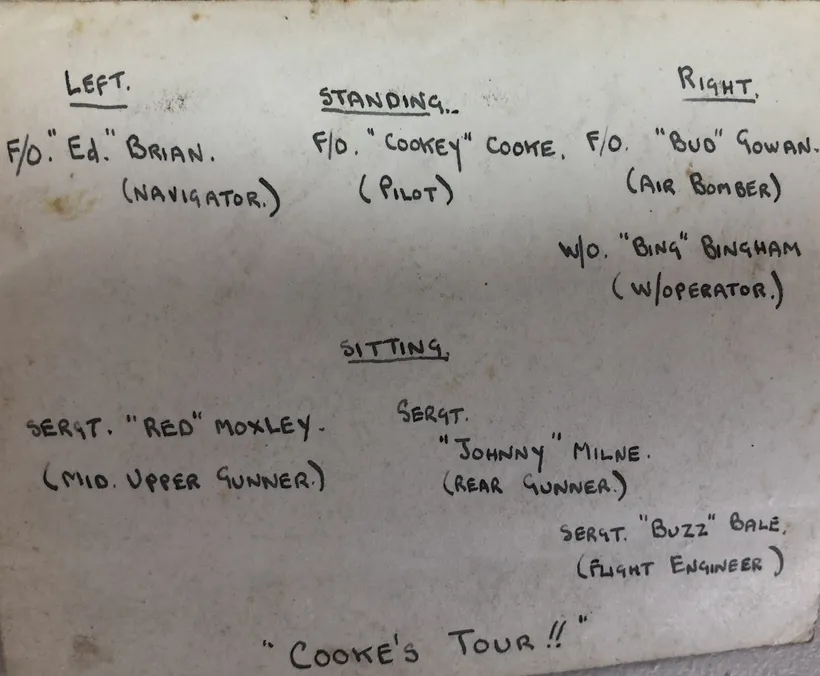 LEFT.
STANDING.
RIGHT.
F/O. "Ed." BRIAN.
(NAVIGATOR.)
F/O. "COOKEY" COOKE.
(PILOT)
F/O. "BUD" GOWAN.
(AIR BOMBER)
W/O. "BING" BINGHAM
(W/OPERATOR.)
SITTING.
SERGT. "RED" MOXLEY.
(MID. UPPER GUNNER.)
SERGT.
"JOHNNY" MILNE.
(REAR GUNNER.)
SERGT. "BUZZ" BALE.
(FLIGHT ENGINEER)
"COOKE'S TOUR!!"